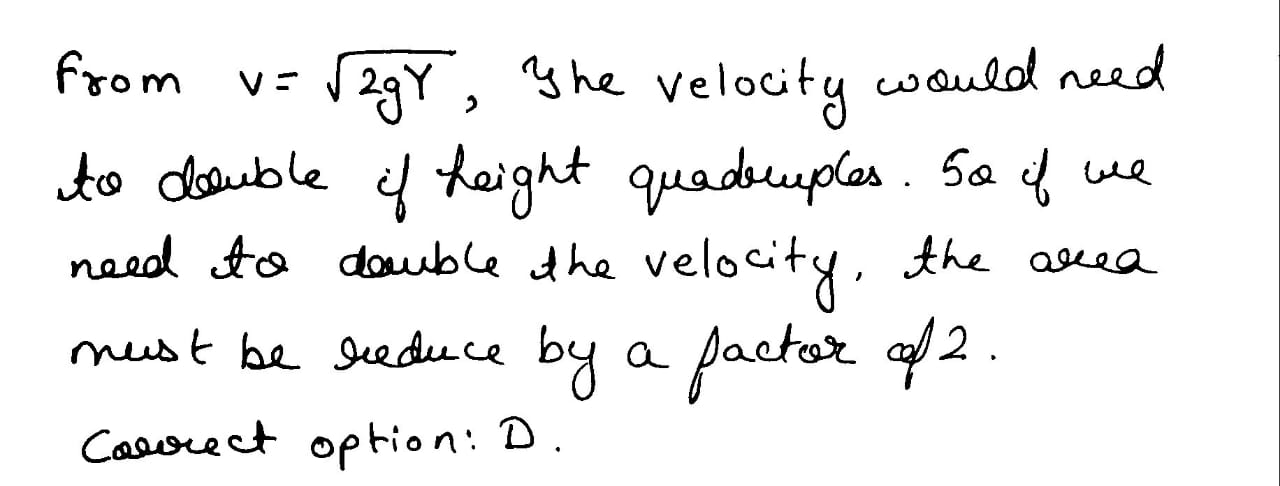 From v = √2gY, The velocity would need
to double if height quadruples. So if we
need to double the velocity, the area
must be reduce by a factor of 2.
Correct option: D.